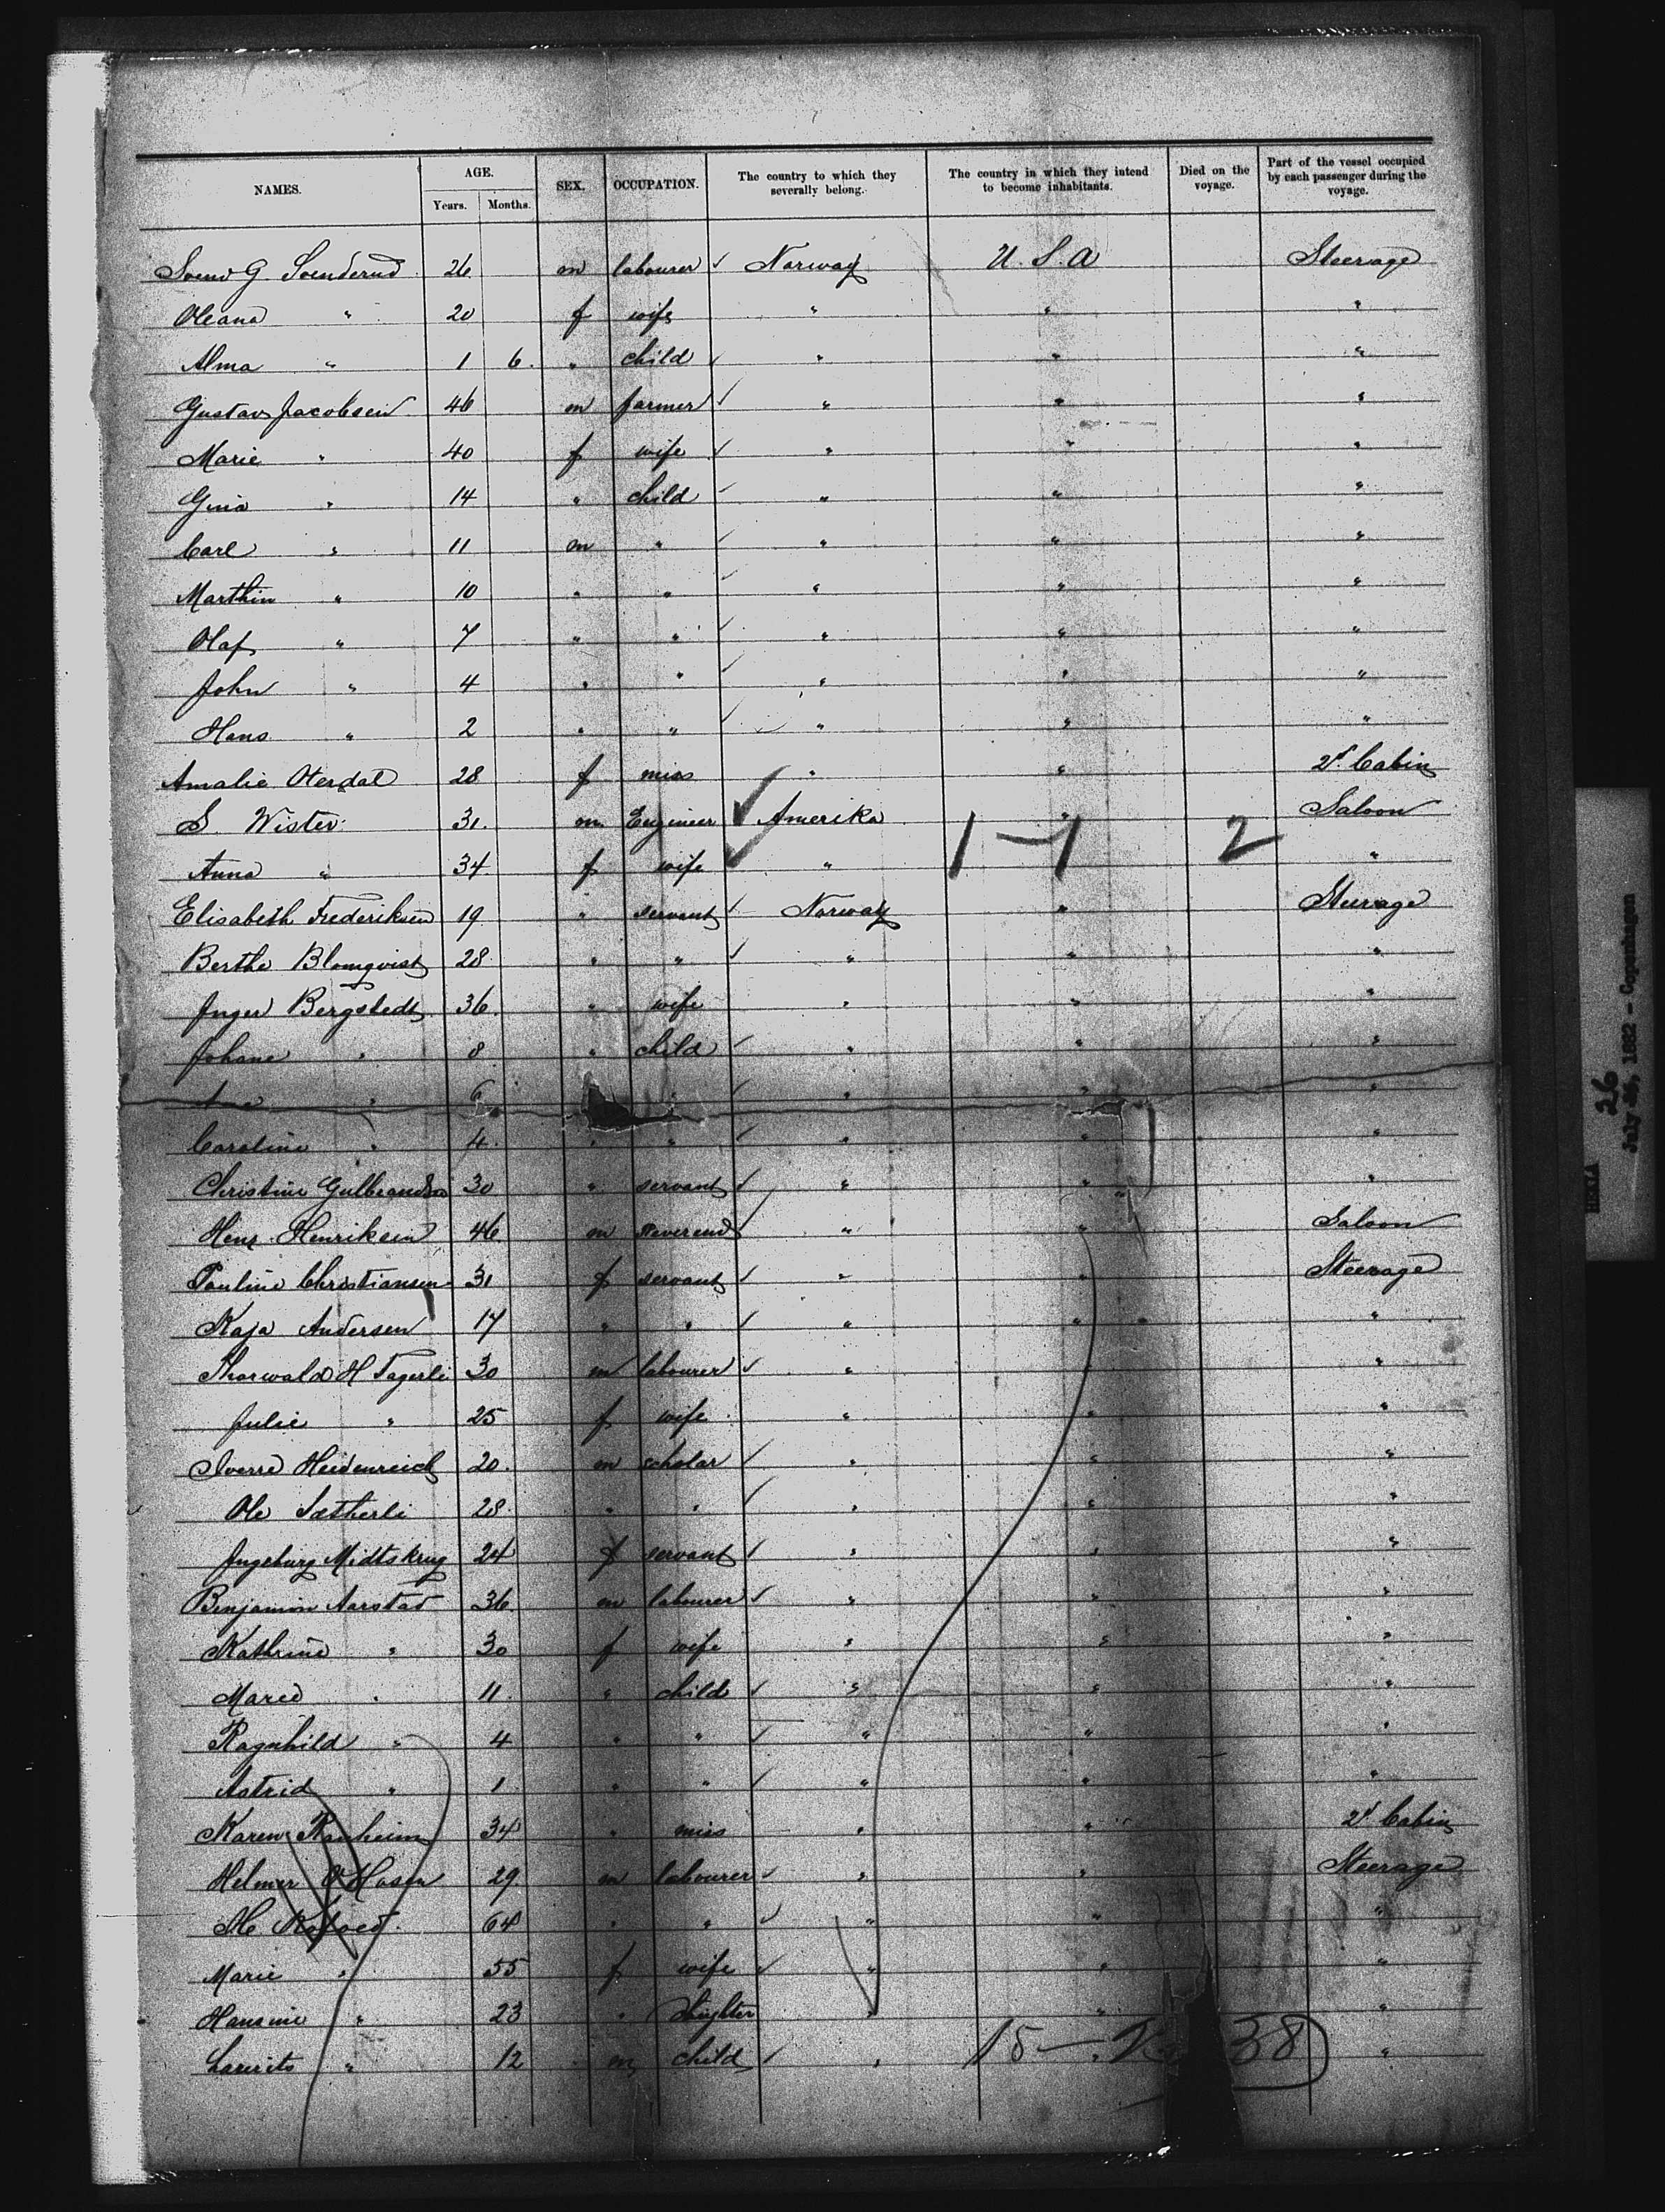 NAMES. AGE. SEX. OCCUPATION. The country to which they severally belong. The country in which they intend to become inhabitants. Died on the voyage. Part of the vessel occupied by each passenger during the voyage.
Years. Months.
Svend G. Svenderud 26 m labourer Norway U. S. A Steerage
Oleana " 20 f wife " " "
Alma " 1 6. " child " " "
Gustav Jacobsen 46 m farmer " " "
Marie " 40 f wife " " "
Gina " 14 " child " " "
Carl " 11 m " " " "
Marthin " 10 " " " " "
Olaf " 7 " " " " "
John " 4 " " " " "
Hans " 2 " " " " "
Amalie Oterdal 28 f miss " " 2d. Cabin
S. Wister 31. m Engineer Amerika " Saloon
Anna " 34 f wife " 1-1 2 "
Elisabeth Frederiksen 19 " servant Norway " Steerage
Berthe Blomqvist 28 " " " " "
Inger Bergstedt 36. " wife " " "
Johane " 8 " child " " "
6 " " " "
Caroline " 4. " " " " "
Christine Gulbrandsen 30 " servant " " "
Henr. Henriksen 46 m Reverend " " Saloon
Pauline Christiansen 31 f servant " " Steerage
Kaja Andersen 17 " " " " "
Thorwald H Fagerli 30 m labourer " " "
Julie " 25 f wife " " "
Sverre Heidenreich 20. m scholar " " "
Ole Sætherli 28. " " " " "
Ingeburg Midtskrug 24 f servant " " "
Benjamin Aarstad 36 m labourer " " "
Kathrine " 30 f wife " " "
Marie " 11. " child " " "
Ragnhild " 4 " " " " "
Astrid " 1 " " " " "
Karen Ranheim 34 " miss " " 2d. Cabin
Helmer O Hosen 29 m labourer " " Steerage
Kofoed 64 " " " " "
Marie " 55 f wife " " "
Hansine " 23 " daughter " " "
Laurits " 12 m child " " "
15 - 38
HEKLA
26
July 26, 1882 - Copenhagen